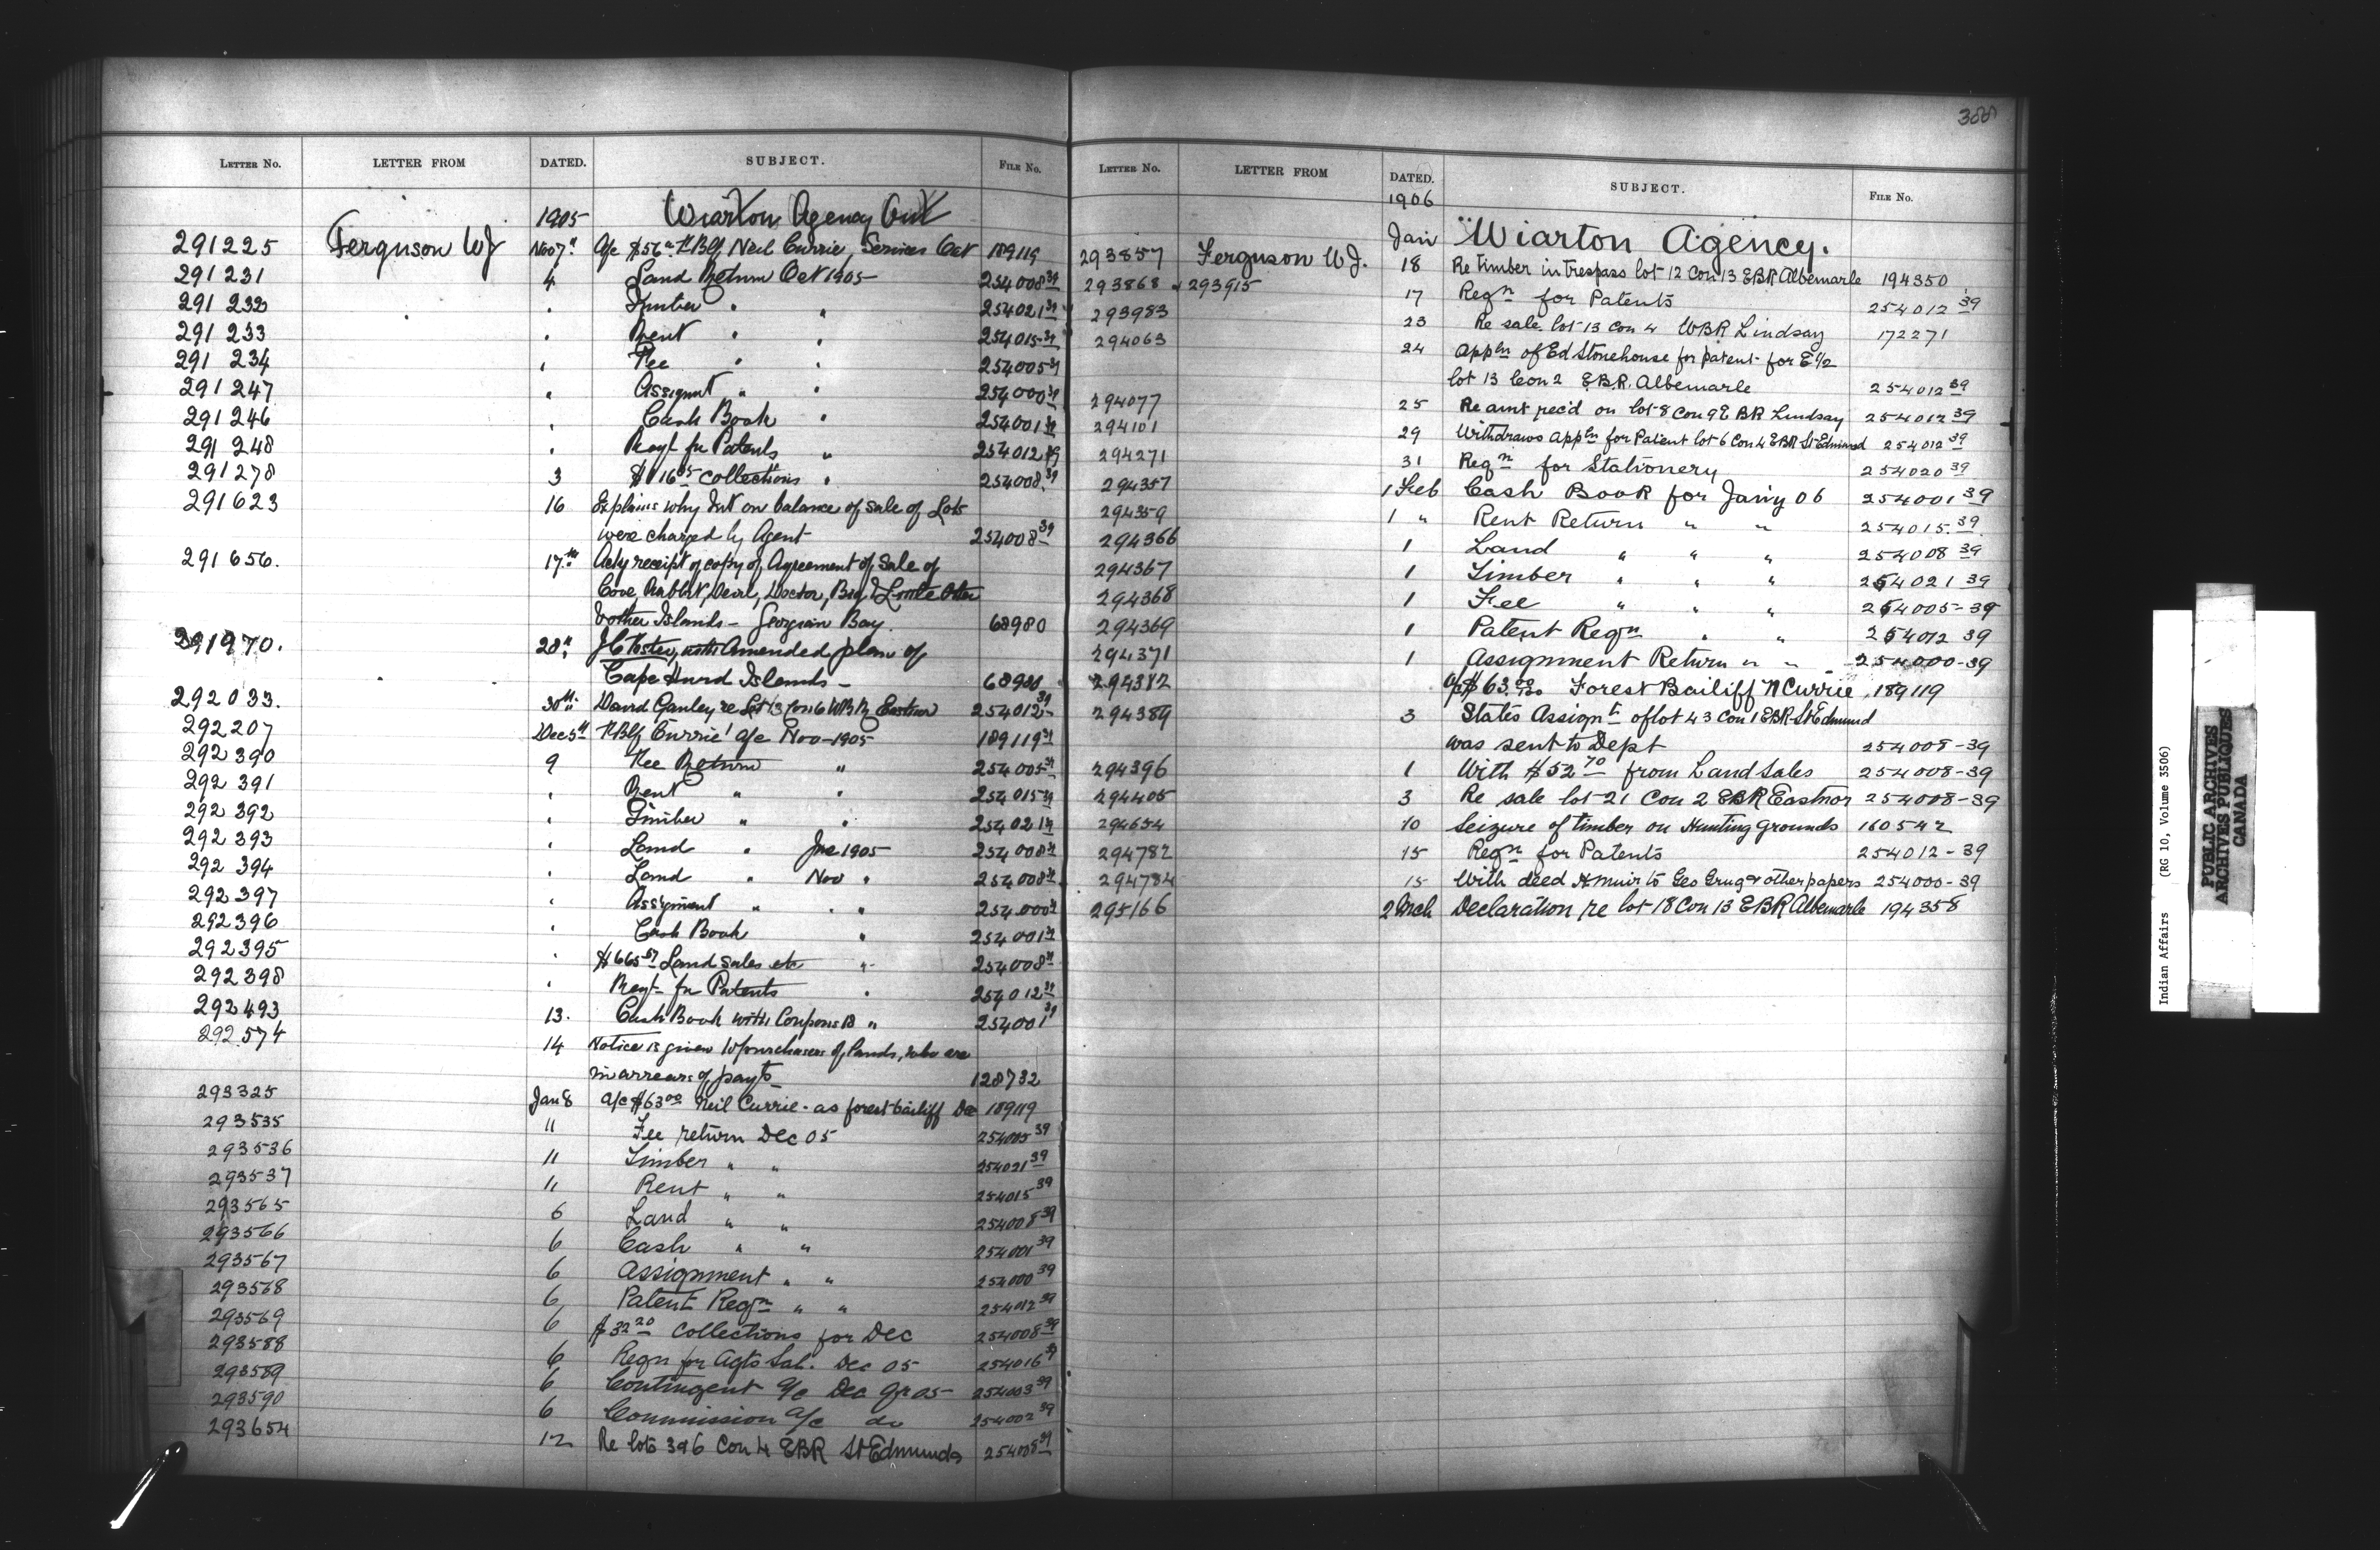 388
LETTER NO. LETTER FROM DATED. SUBJECT. FILE NO.
1905 Wiarton Agency Ont
291225 Ferguson WJ Nov 7th A/c $56 Neil Currie, Services Oct 189119
291231 4 Land Return Oct 1905 254008 39
291232 " Timber " " 254021 39
291233 " Rent " " 254015 39
291234 " Fee " " 254005 39
291247 " Assignmt " " 254000 39
291246 " Cash Book " 254001 39
291248 " Reqt for Patents " 254012 39
291278 3 collections " 254008 39
291623 16 Explains why Int on balance of sale of Lots
were charged by Agent 254008 39
291656. 17th Ackg receipt of copy of Agreement of Sale of
Cove, Rabbit, Devil, Doctor, Big & Little Otter
& other Islands - Georgian Bay. 68980
291970. 28th J C Foster, with Amended plan of
Cape Hurd Islands - 68980
292033. 30th David Ganley re Lot 13 Con 6 WBR Eastnor 254012 39
292207 Dec 5th Currie' a/c Nov - 1905 189119 39
292390 9 Fee Return " 254005 39
292391 " Rent " " 254015 39
292392 " Timber " " 254021 39
292393 " Land " 1905 254008 39
292394 " Land " Nov " 254008 39
292397 " Assignment " " " 254000 39
292396 " Cash Book " 254001 39
292395 " $665 57 Land Sales etc " 254008 39
292398 " Reqt for Patents " 254012 39
292493 13. Cash Book with Coupons " 254001 39
292574 14 Notice is given to purchasers of Lands, who are
in arrears of payts 128732
293325 Jan 8 a/c $63 00 Neil Currie - as forest bailiff Dec 189119
293535 11 Fee return Dec 05 254005 39
293536 11 Timber " " 254021 39
293537 11 Rent " " 254015 39
293565 6 Land " " 254008 39
293566 6 Cash " " 254001 39
293567 6 Assignment " " 254000 39
293568 6 Patent Reqn " " 254012 39
293569 6 $32 20 Collections for Dec 254008 39
293588 6 Reqn for Agts Sal. Dec 05 254016 39
293589 6 Contingent a/c Dec qr 05 254003 39
293590 6 Commission a/c do 254002 39
293654 12 Re lots 3 & 6 Con 4 EBR St Edmunds 254008 39
LETTER NO. LETTER FROM DATED. SUBJECT. FILE NO.
1906
Jan Wiarton Agency.
293857 Ferguson WJ. 18 Re timber in trespass lot 12 Con 13 EBR Albemarle 194350
293868 & 293915 17 Reqn for Patents 254012 39
293983 23 Re sale lot 13 Con 4 WBR Lindsay 172271
294063 24 Appln of Ed Stonehouse for patent for E 1/2
lot 13 Con 2 EBR Albemarle 254012 39
294077 25 Re amt rec'd on lot 8 Con 9 EBR Lindsay 254012 39
294101 29 Withdraws appln for Patent lot 6 Con 4 EBR St Edmund 254012 39
294271 31 Reqn for Stationery 254020 39
294357 1 Feb Cash Book for Jan'y 06 254001 39
294359 1 " Rent Return " " 254015 39
294366 1 Land " " " 254008 39
294367 1 Timber " " " 254021 39
294368 1 Fee " " " 254005-39
294369 1 Patent Reqn " " 254012 39
294371 1 Assignment Return " " 254000-39
294382 a/c $63.00 Forest Bailiff N Currie 189119
294389 3 States Assignt of lot 43 Con 1 EBR St Edmund
was sent to Dept 254008-39
294396 1 With $52 70 from Land Sales 254008-39
294405 3 Re sale lot 21 Con 2 EBR Eastnor 254008-39
294654 10 Seizure of timber on Hunting grounds 160542
294782 15 Reqn for Patents 254012-39
294784 15 With deed H Muir to Geo & other papers 254000-39
295166 2 Mch Declaration re lot 18 Con 13 EBR Albemarle 194358
Indian Affairs (RG 10, Volume 3506)
PUBLIC ARCHIVES
ARCHIVES PUBLIQUES
CANADA